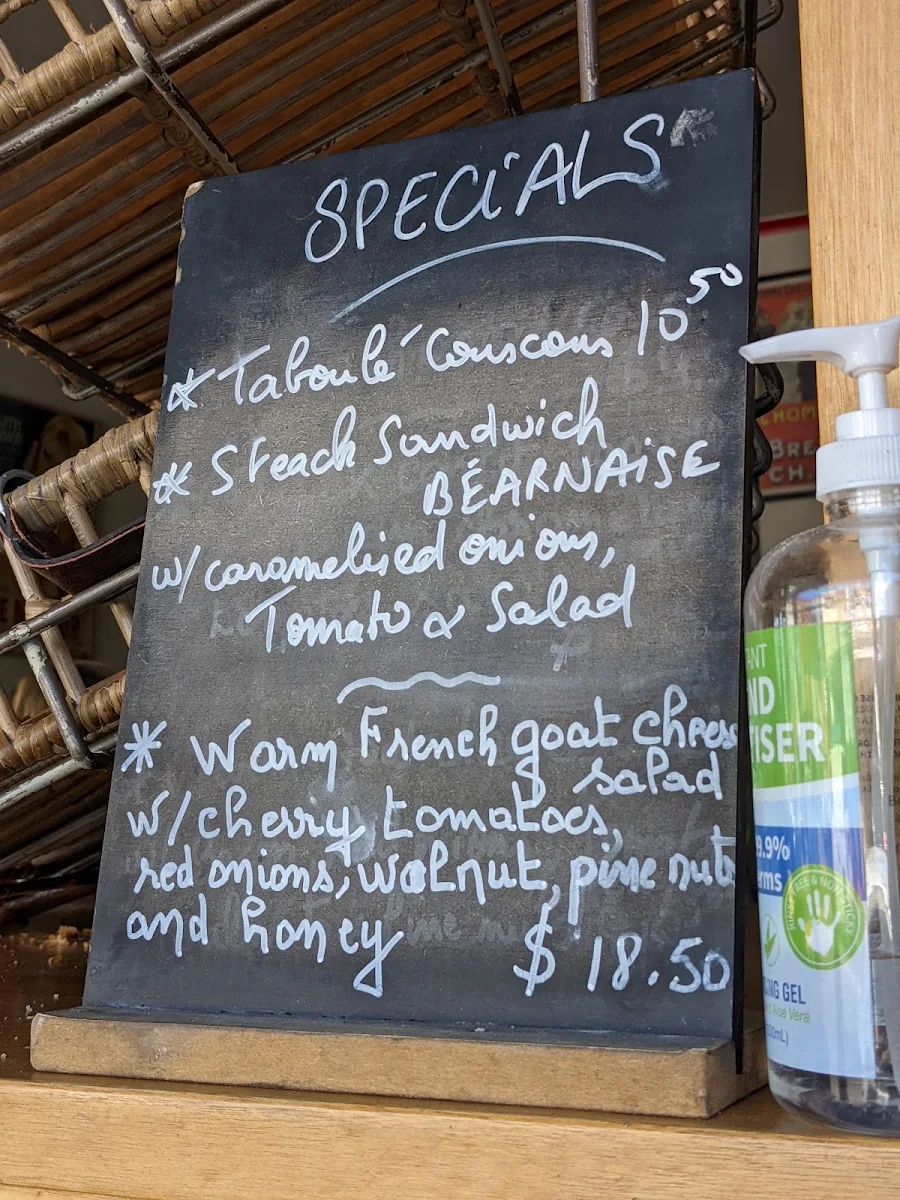 SPECiALS
* Taboulé Couscous 10 50
* Steack Sandwich
BÉARNAiSE
w/ caramelised onions,
Tomato & Salad
* Warm French goat cheese
salad
w/ cherry tomatoes,
red onions, walnut, pine nuts
and honey
$ 18.50
ANT
ND
TISER
9.9%
erms
KING GEL
Aloe Vera
00mL)
BRE
CH.